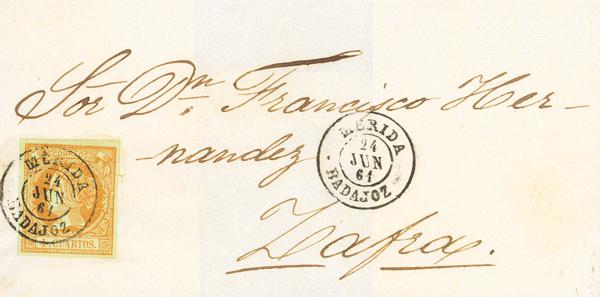 Sor Dn. Francisco Her-
-nandez
Zafra.
MERIDA
24
JUN
61
BADAJOZ
MERIDA
24
JUN
61
BADAJOZ
CUARTOS.